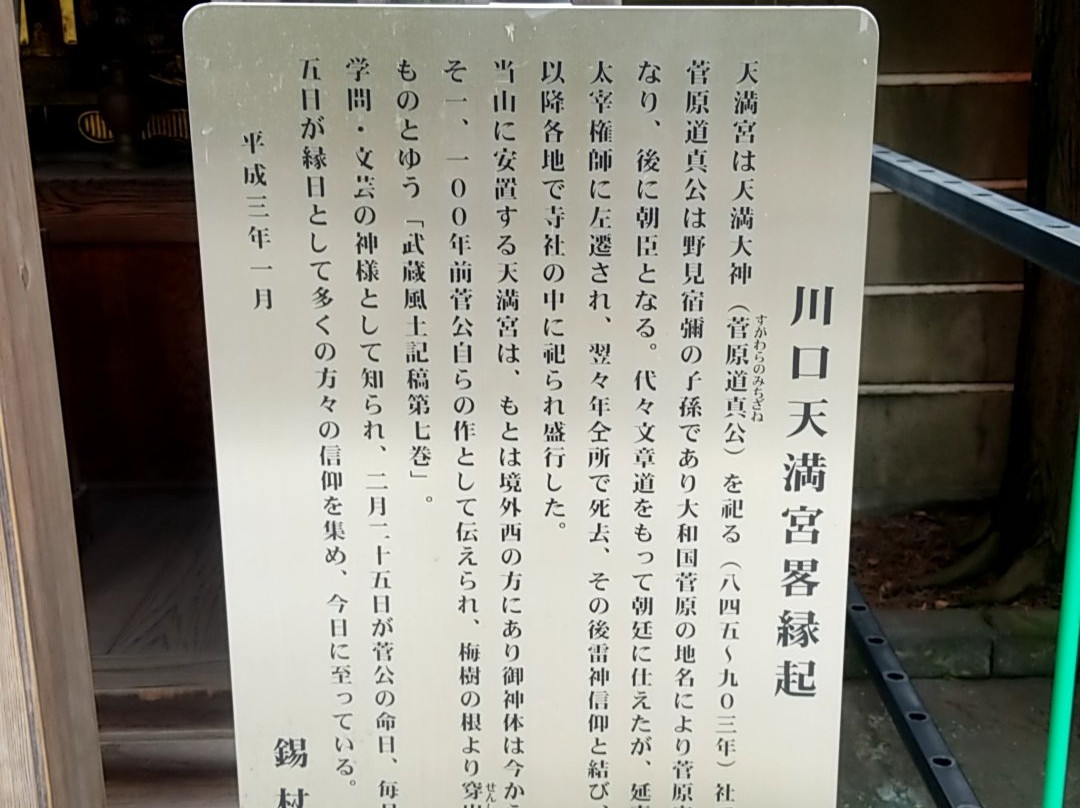 川口天満宮畧縁起
天満宮は天満大神（菅原道真公）を祀る（八四五～九〇三年）社
すがわらのみちざね
菅原道真公は野見宿彌の子孫であり大和国菅原の地名により菅原
なり、後に朝臣となる。代々文章道をもって朝廷に仕えたが、延
太宰権師に左遷され、翌々年仝所で死去、その後雷神信仰と結び、
以降各地で寺社の中に祀られ盛行した。
当山に安置する天満宮は、もとは境外西の方にあり御神体は今か
そ一、一〇〇年前菅公自らの作として伝えられ、梅樹の根より穿
せん
ものとゆう「武蔵風土記稿第七巻」。
学問・文芸の神様として知られ、二月二十五日が菅公の命日、毎
五日が縁日として多くの方々の信仰を集め、今日に至っている。
平成三年一月
錫